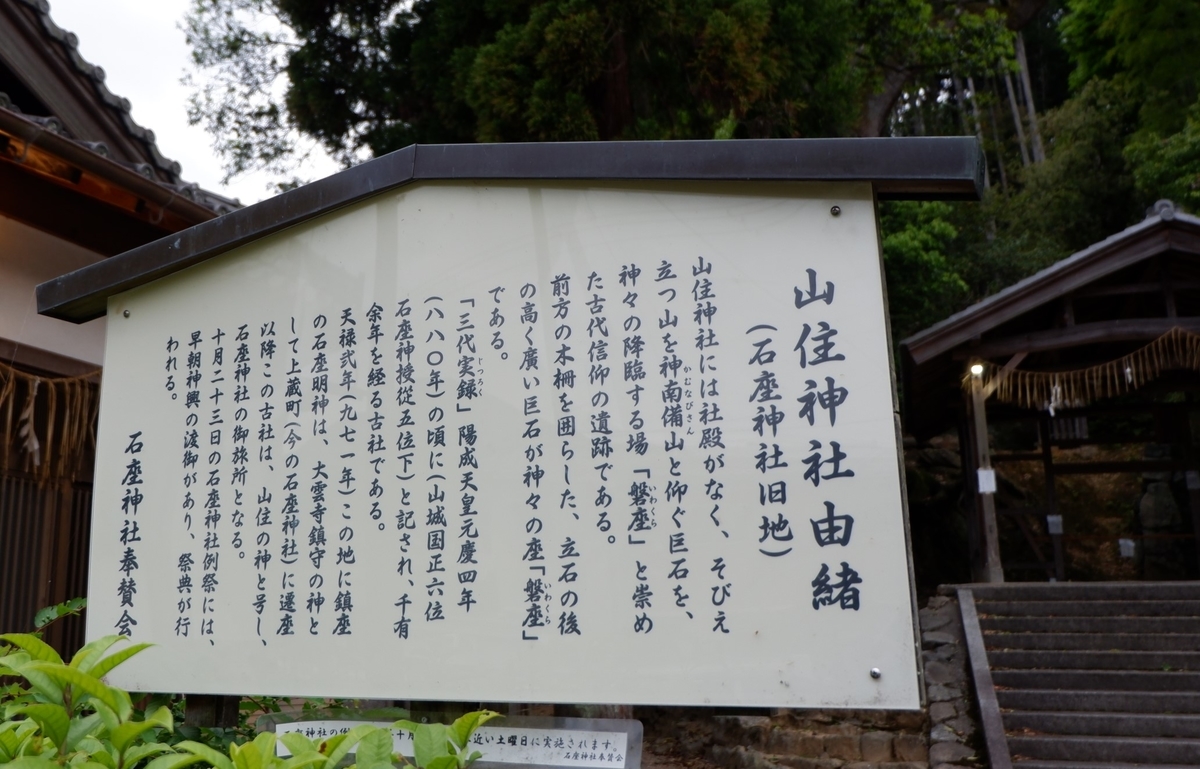 山住神社由緒
(石座神社旧地)
山住神社には社殿がなく、そびえ
立つ山を神南備山と仰ぐ巨石を、
かむなびさん
神々の降臨する場「磐座」と崇め
いわくら
た古代信仰の遺跡である。
前方の木柵を囲らした、立石の後
の高く廣い巨石が神々の座「磐座」
いわくら
である。
「三代実録」陽成天皇元慶四年
じつろく
(八八〇年)の頃に(山城国正六位
石座神授從五位下)と記され、千有
余年を経る古社である。
天禄弐年(九七一年)この地に鎮座
の石座明神は、大雲寺鎮守の神と
して上蔵町(今の石座神社)に遷座
以降この古社は、山住の神と号し、
石座神社の御旅所となる。
十月二十三日の石座神社例祭には、
早朝神輿の渡御があり、祭典が行
われる。
石座神社奉賛会
石座神社の
十月
近い土曜日に実施されます。
石座神社奉賛会